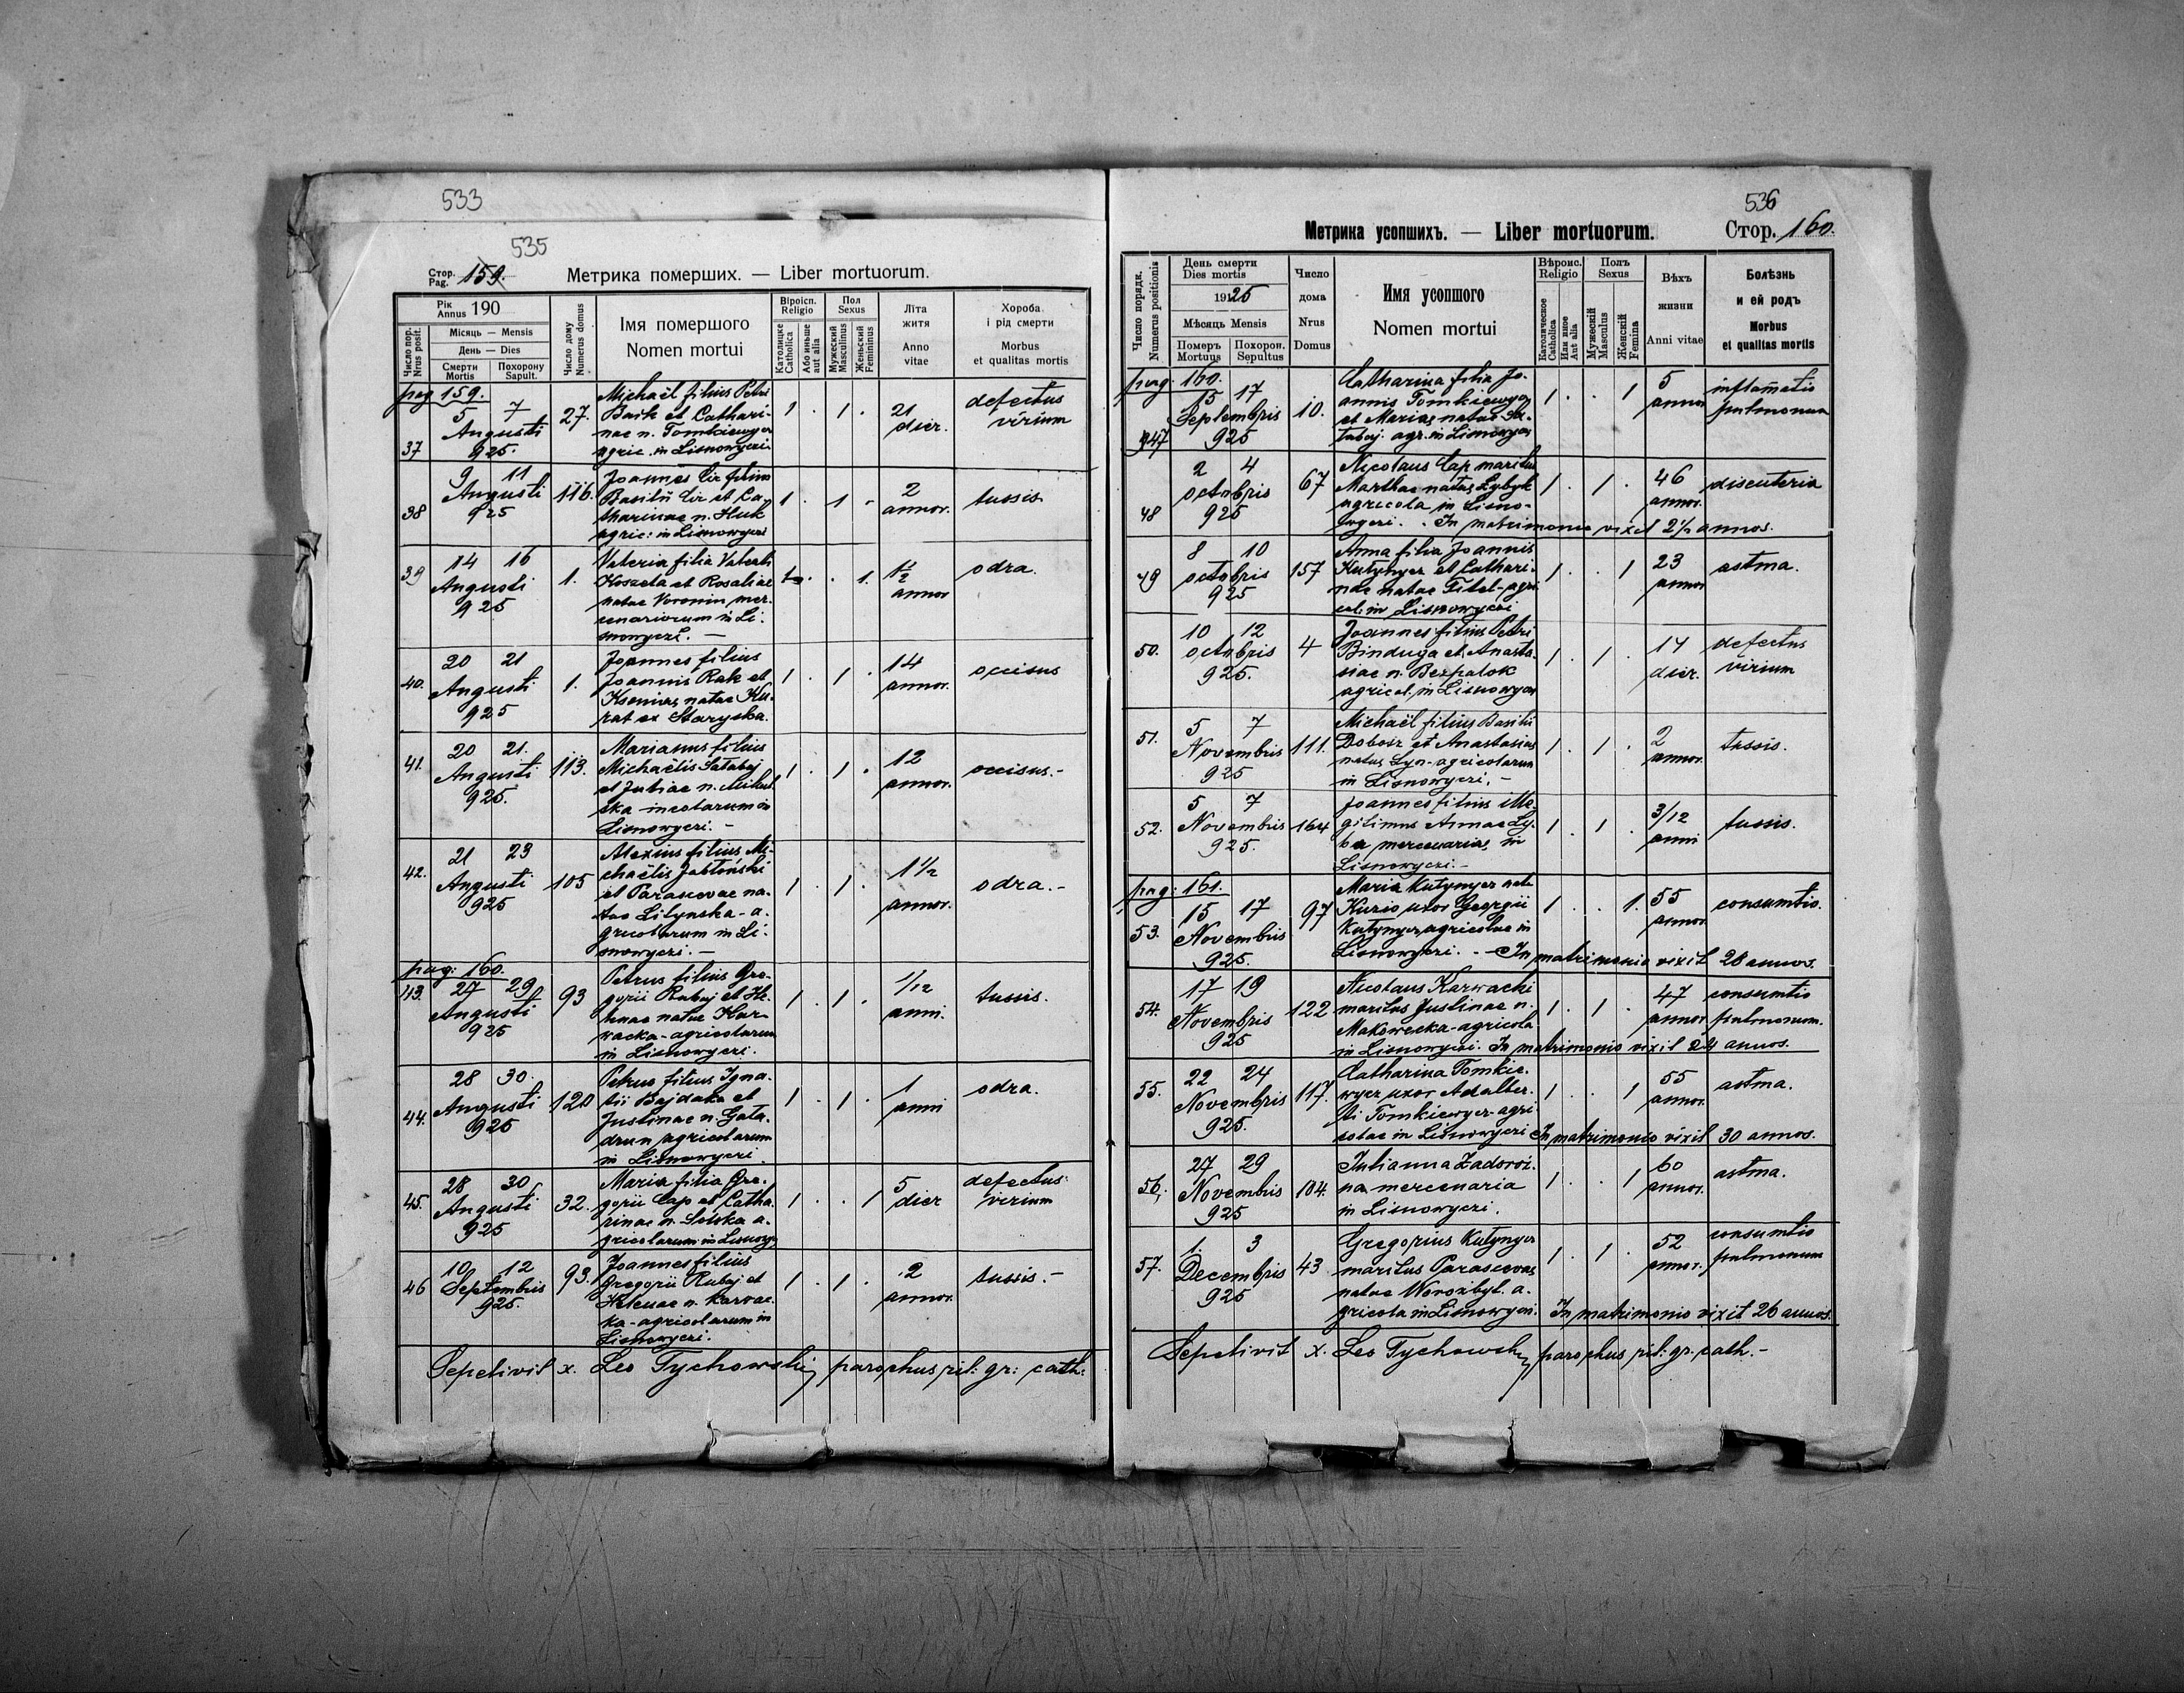 533
535
Стор.
Pag. 159.
Метрика померших. — Liber mortuorum.
Число пор.
Nrus posit.
Рік
Annus 190
Місяць — Mensis
День — Dies
Смерти
Mortis
Похорону
Sapult.
Число дому
Numerus domus
Імя помершого
Nomen mortui
Віроісп.
Religio
Католицке
Catholica
Або иньше
aut alia
Пол
Sexus
Мужеский
Masculinus
Женьский
Femininus
Літа
житя
Anno
vitae
Хороба
і рід смерти
Morbus
et qualitas mortis
pag 159.
37
5 7
Augusti
925.
27.
Michaël filius Petri
Bark et Cathari-
nae n. Tomkiewycz
agric. in Lisnowyczi
1 . 1 .
21
dier.
defectus
virium
38
9 11
Augusti
925
116.
Joannes Cir filius
Basilii Cir et Ca-
tharinae n. Huk
agric: in Lisnowyczi
1 . 1 .
2
annor.
tussis
39
14 16
Augusti
925
1.
Valeria filia Valenti
Koszela et Rosaliae
natae Voronin mer-
cenariorum in Li-
snowyczi. —
1 . . 1.
1½
annor
odra.
40.
20 21
Augusti
925
1.
Joannes filius
Joannis Rak et
Kseniae natae Ku-
rat ex Staryska.
1 . 1 .
14
annor.
occisus
41.
20 21.
Augusti
925.
113.
Marianus filius
Michaëlis Satabaj
et Juliae n.
in
Lisnowyczi. —
1 . 1 .
12
annor.
occisus. -
42.
21 23
Augusti
925
105
Alexius filius Mi-
chaëlis Jabłoński
et Parascevae na-
tae Lilynska - a-
gricolarum in Li-
snowyczi. —
1 . 1 .
1½
annor.
odra. -
pag: 160.
43.
27 29
Augusti
925
93
Petrus filius Gre-
gorii Rubaj et He-
lenae natae Kar-
wacka - agricolarum
in Lisnowyczi.
1 . 1 .
1/12
anni.
tussis.
44.
28 30.
Augusti
925
120
Petrus filius Igna-
tii Bajdaka et
Justinae n. Gała-
drun agricolarum
in Lisnowyczi.
1 . 1 .
1
anni
odra.
45.
28 30
Augusti
925
32.
Maria filia Gre-
gorii Cap et Catha-
rinae n. Solska a-
gricolarum in Lisnowy
1 . . 1
5
dier
defectus
virium
46
10 12
Septembris
925.
93.
Joannes filius
Gregorii Rubaj et
Helenae n. Karvac-
ka - agricolarum in
Lisnowyczi.
1 . 1 .
2
annor.
tussis. -
Sepelivit x. Leo Tychowskij parochus rit: gr: cath:
536
Метрика усопшихъ. — Liber mortuorum.
Стор. 160.
Число порядк.
Numerus positionis
День смерти
Dies mortis
1925
Мѣсяць Mensis
Померъ
Mortuus
Похорон.
Sepultus
Число
дома
Nrus
Domus
Имя усопшого
Nomen mortui
Вѣроис.
Religio
Католическое
Catholica
Или иное
Aut alia
Полъ
Sexus
Мужескій
Masculus
Женскій
Femina
Вѣхъ
жизни
Anni vitae
Болѣзнь
и ей родъ
Morbus
et qualitas mortis
pag: 160.
47
15 17
Septembris
925
10.
Catharina filia Jo-
annis Tomkiewycz
et Mariae natae Sa-
tabaj. agr. in Lisnowyczi
1 . . 1
5
annor
inflamatio
pulmonum
48
2 4
octobris
925
67
Nicolaus Cap maritus
Marthae natae Lybyk
agricola in Lisno-
wyczi. . In matrimonio vixit 2½ annos.
1 . 1 .
46
annor.
discuteria
49
8 10
octobris
925
157
Anna filia Joannis
Kutynycz et Cathari-
nae natae Titel - agri
col. in Lisnowyczi
1 . . 1
23
annor
astma.
50.
10 12
octobris
925.
4
Joannes filius Petri
Binduga et Anasta-
siae n. Bezpalok
agricol. in Lisnowyczi
1 . 1 .
14
dier.
defectus
virium
51.
5 7
Novembris
925
111.
Michaël filius Basilii
Dobosz et Anastasiae
natae Lyn - agricolarum
in Lisnowyczi. -
1 . 1 .
2
annor.
tussis.
52.
5 7
Novembris
925.
164
Joannes filius ille-
gitimus Annae Ly-
ba mercenariae in
Lisnowyczi. -
1 . 1 .
3/12
anni
tussis.
pag: 161.
53.
15 17
Novembris
925.
97
Maria Kutynycz nata
Kuzio uxor Georgii
Kutynycz agricolae in
Lisnowyczi. - In matrimonio vixit 28 annos.
1 . . 1.
55
annor.
consumtio.
54.
17 19
Novembris
925
122
Nicolaus Karwacki
maritus Justinae n.
Makowecka - agricola
in Lisnowyczi. In matrimonio vixit 24 annos.
1 . 1 .
47
annor
consumtio
pulmonum.
55.
22 24
Novembris
925.
117.
Catharina Tomkie-
wycz uxor Adalber-
ti Tomkiewycz - agri-
colae in Lisnowyczi In matrimonio vixit 30 annos.
1 . . 1
55
annor.
astma.
56.
27 29
Novembris
925
104.
Julianna Zadoroż-
na mercenaria
in Lisnowyczi.
1 . . 1
60
annor.
astma.
57.
1. 3
Decembris
925
43
Gregorius Kutynycz
maritus Parascevae
natae Worozbyt. a-
gricola in Lisnowyczi. In matrimonio vixit 26 annos.
1 . 1 .
52
annor.
consumtio
pulmonum
Sepelivit x. Leo Tychowskij parochus rit: gr: cath. -